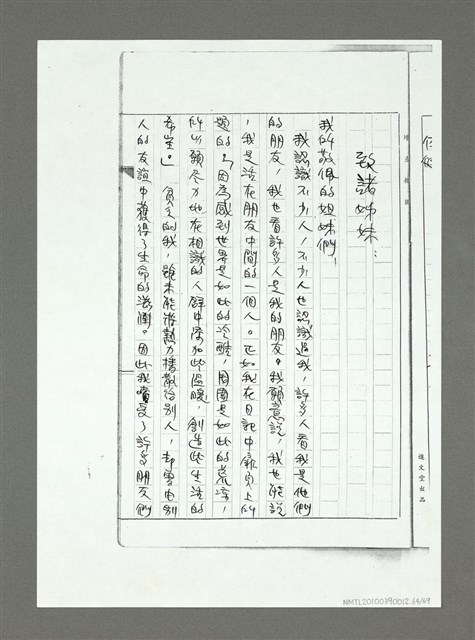 致諸姊妹：
我所敬佩的姐妹們！
我認識不少人，不少人也認識過我，許多人看我是他們
的朋友，我也看許多人是我的朋友。我願意說，我也能說
，我是活在朋友中間的一個人。正如我在日記中扉頁上的
題的「因為感到世界是如此的冷酷，周圍是如此的荒涼，
所以願尽力地在相識的人群中添加些溫暖，創造些生活的
希望。」 貧乏的我，雖未能將熱力播散給別人，却曾由別
人的友誼中獲得了生命的滋潤。因此我嚐受了許多朋友們
進文堂出品
NMTL20100390012 64/69